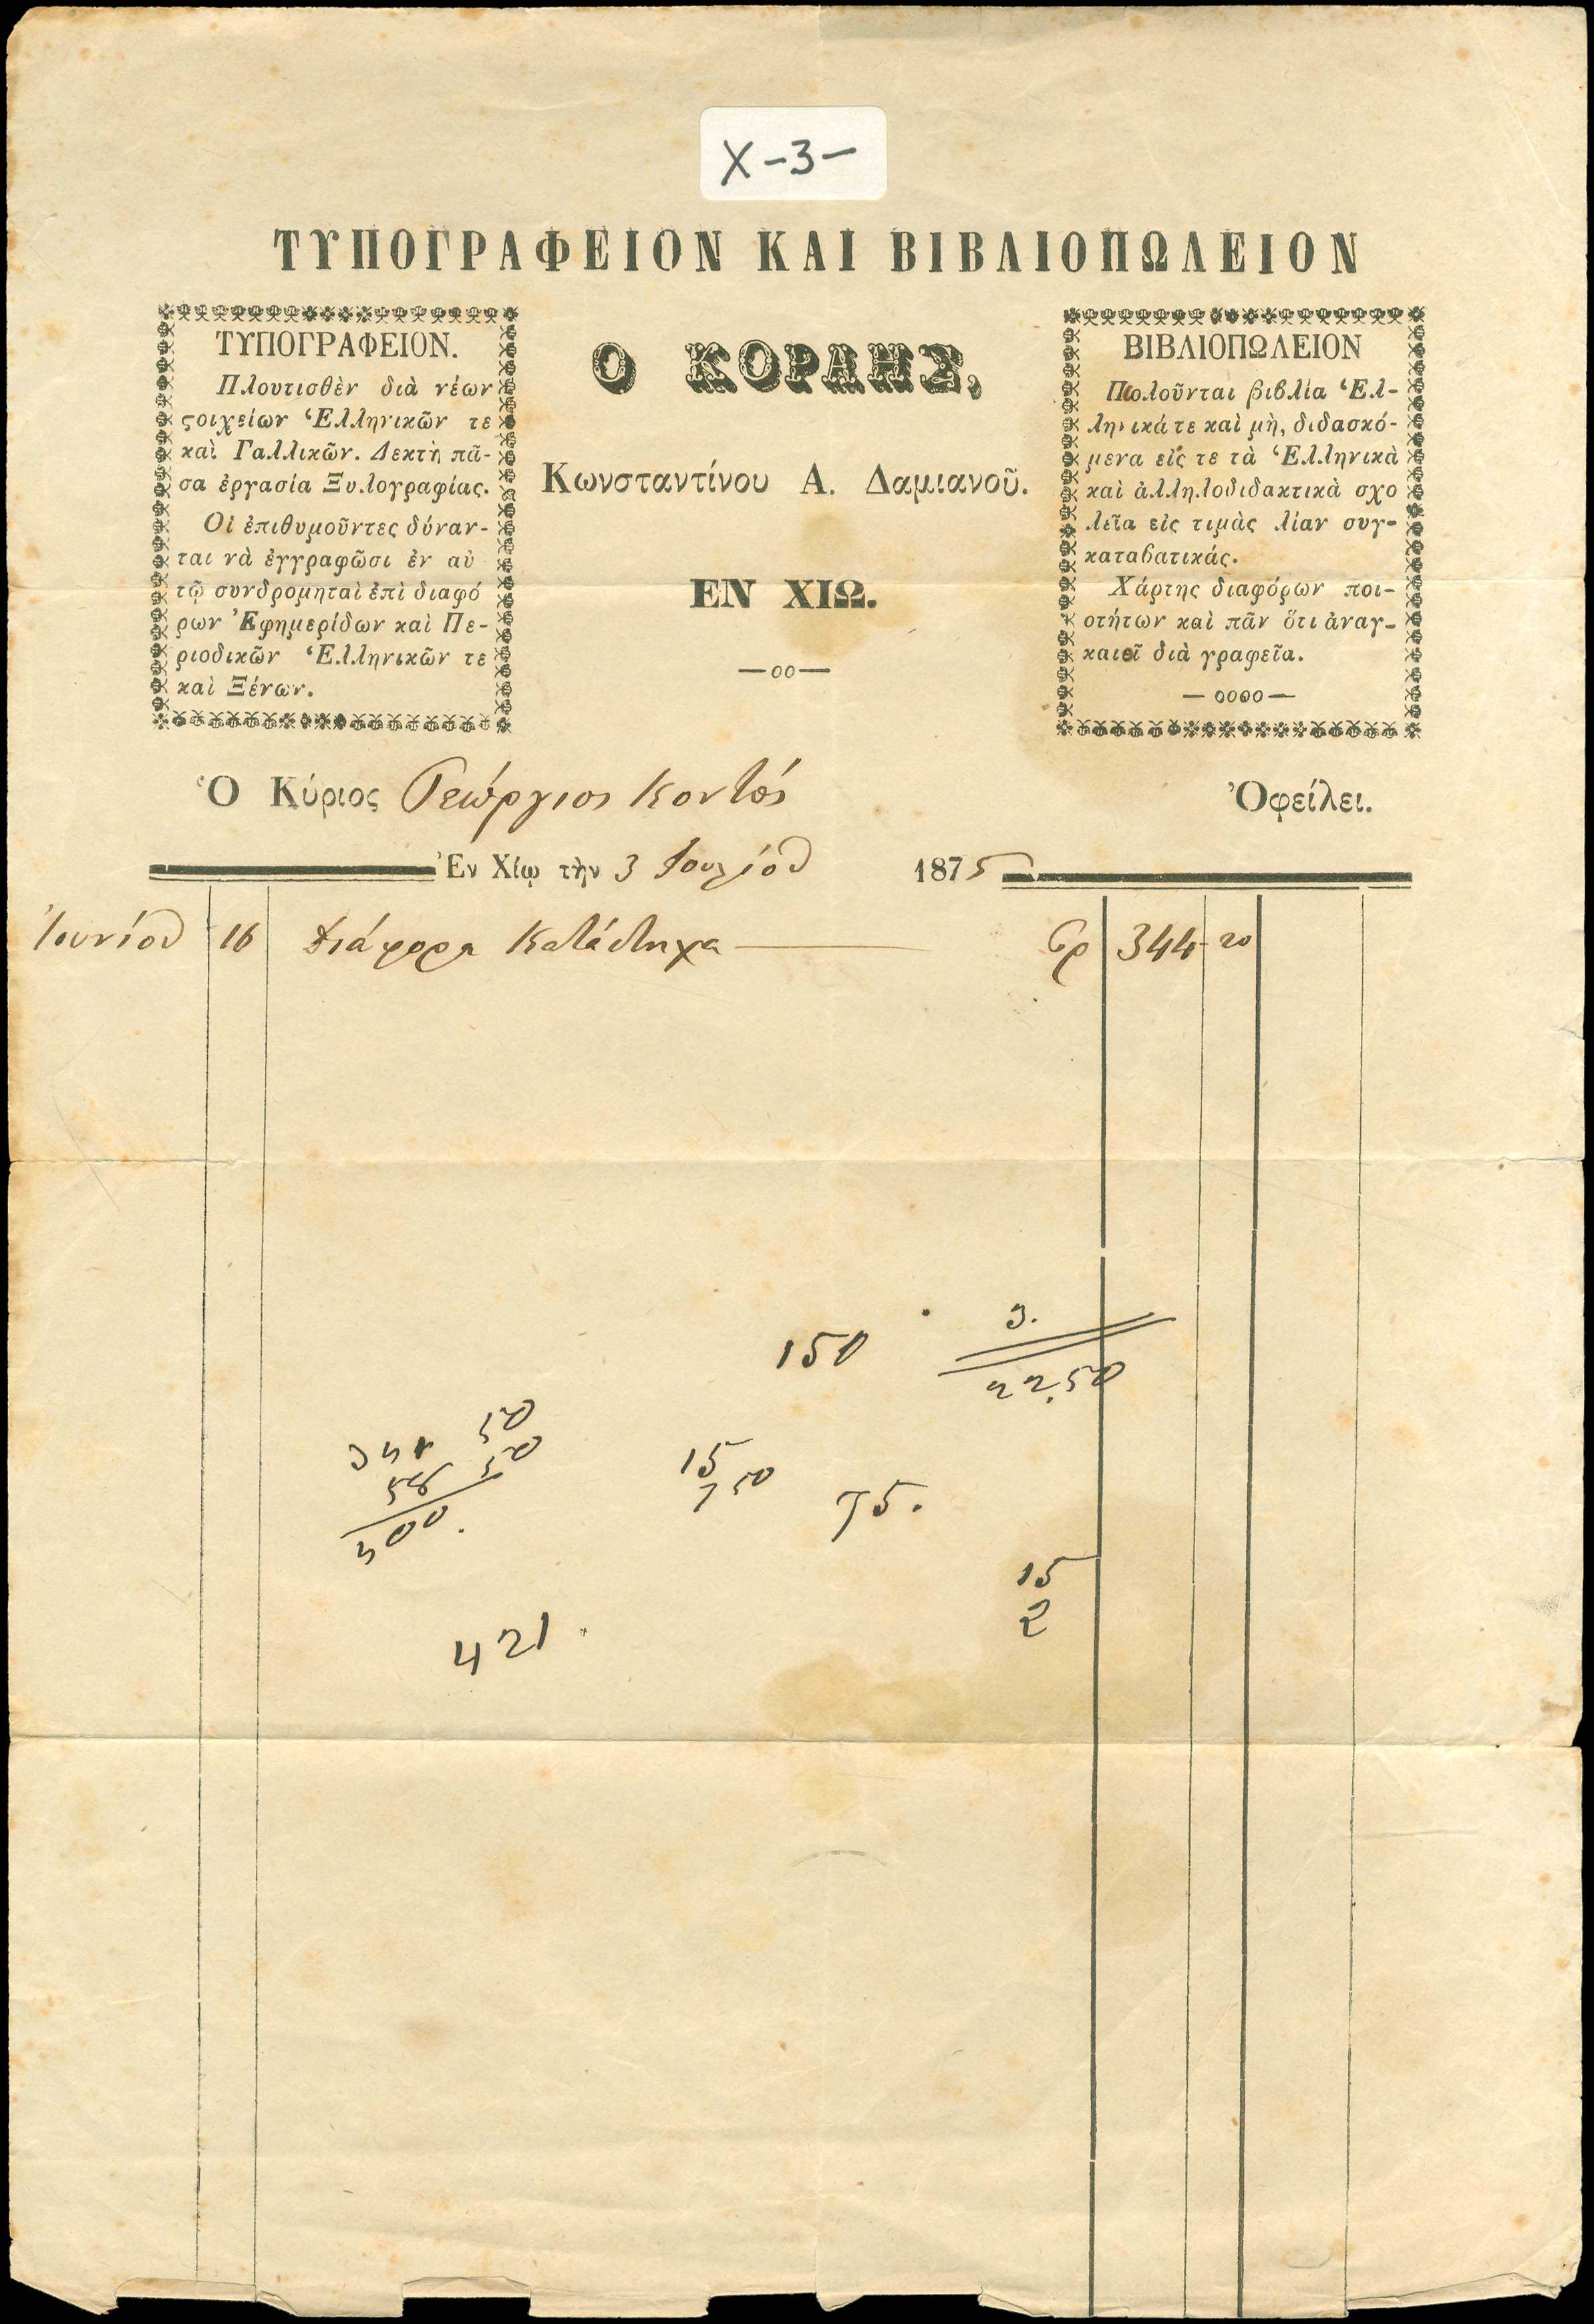 X-3-
ΤΥΠΟΓΡΑΦΕΙΟΝ ΚΑΙ ΒΙΒΛΙΟΠΩΛΕΙΟΝ
ΤΥΠΟΓΡΑΦΕΙΟΝ.
Πλουτισθὲν διὰ νέων
ϛοιχείων Ἑλληνικῶν τε
καὶ Γαλλικῶν. Δεκτὴ πᾶ-
σα ἐργασία Ξυλογραφίας.
Οἱ ἐπιθυμοῦντες δύναν-
ται νὰ ἐγγραφῶσι ἐν αὐ
τῷ συνδρομηταὶ ἐπὶ διαφό
ρων Ἐφημερίδων καὶ Πε-
ριοδικῶν Ἑλληνικῶν τε
καὶ Ξένων.
Ο ΚΟΡΑΗΣ,
Κωνσταντίνου Α. Δαμιανοῦ.
ΕΝ ΧΙΩ.
—οο—
ΒΙΒΛΙΟΠΩΛΕΙΟΝ
Πωλοῦνται βιβλία Ἑλ-
ληνικά τε καὶ μὴ, διδασκό-
μενα εἰς τε τὰ Ἑλληνικὰ
καὶ ἀλληλοδιδακτικὰ σχο
λεῖα εἰς τιμὰς λίαν συγ-
καταβατικάς.
Χάρτης διαφόρων ποι-
οτήτων καὶ πᾶν ὅτι ἀναγ-
καιεῖ διὰ γραφεῖα.
—οοοο—
Ὁ Κύριος Γεώργιος Κοντός Ὀφείλει.
Ἐν Χίῳ τὴν 3 Ἰουλίου 1875
Ἰουνίου 16 Διάφορα Κατάστιχα Γρ 344-20
3.
150
22.50
50
50
15
7 50
75.
500.
15
2
421.